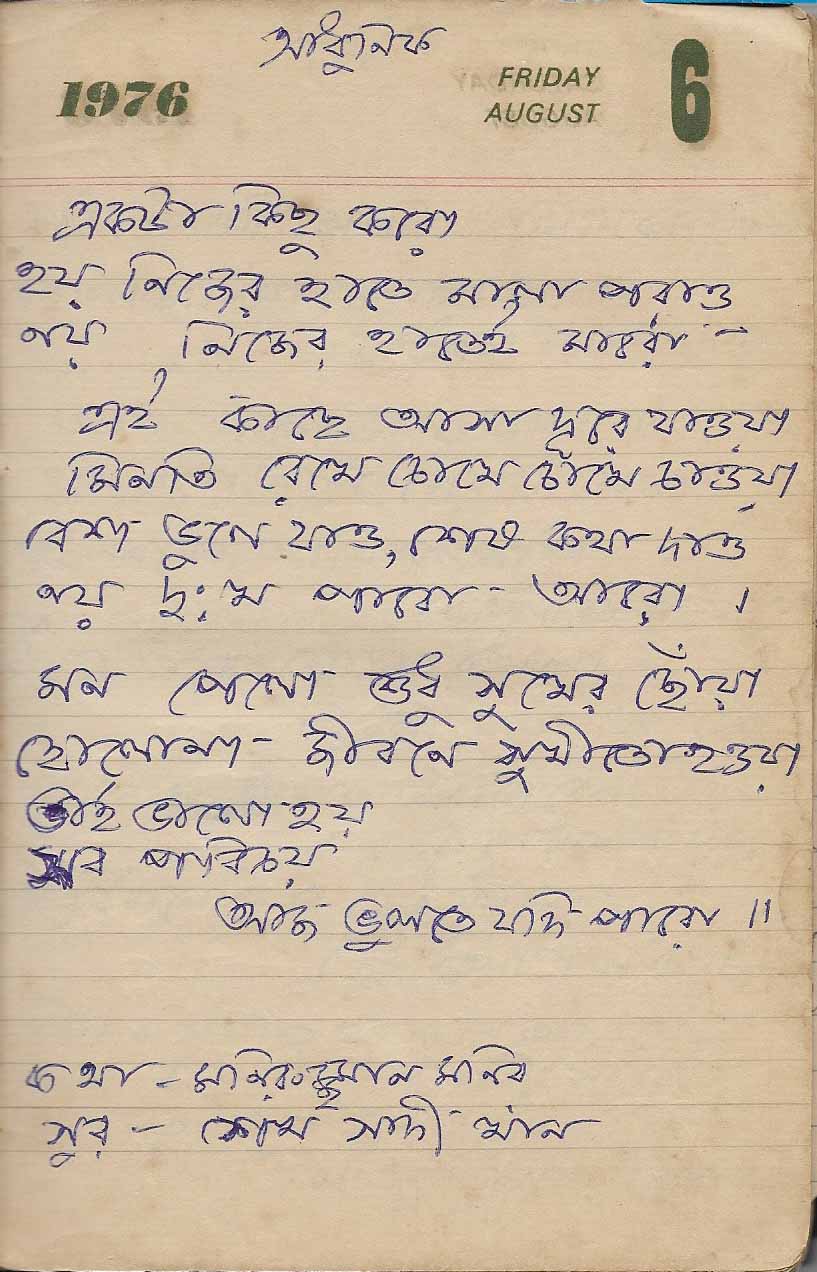 আধুনিক
1976
FRIDAY
AUGUST
6
একটা কিছু করো
হয় নিজের হাতে মালা পরাও
নয় নিজের হাতেই মারো
এই কাছে আসা দূরে যাওয়া
মিনতি রেখে চোখে চোখে চাওয়া
বেশ ভুলে যাও, শেষ কথা দাও
নয় দুঃখ পাবো আরো ।
মন পেলো শুধু সুখের ছোঁয়া
হোলোনা জীবনে সুখী তো হওয়া
তাই ভালো হয়
সব পরিচয়
আজ ভুলতে যদি পারো ॥
কথা - মনিরুজ্জামান মনির
সুর - শেখ সাদী খান